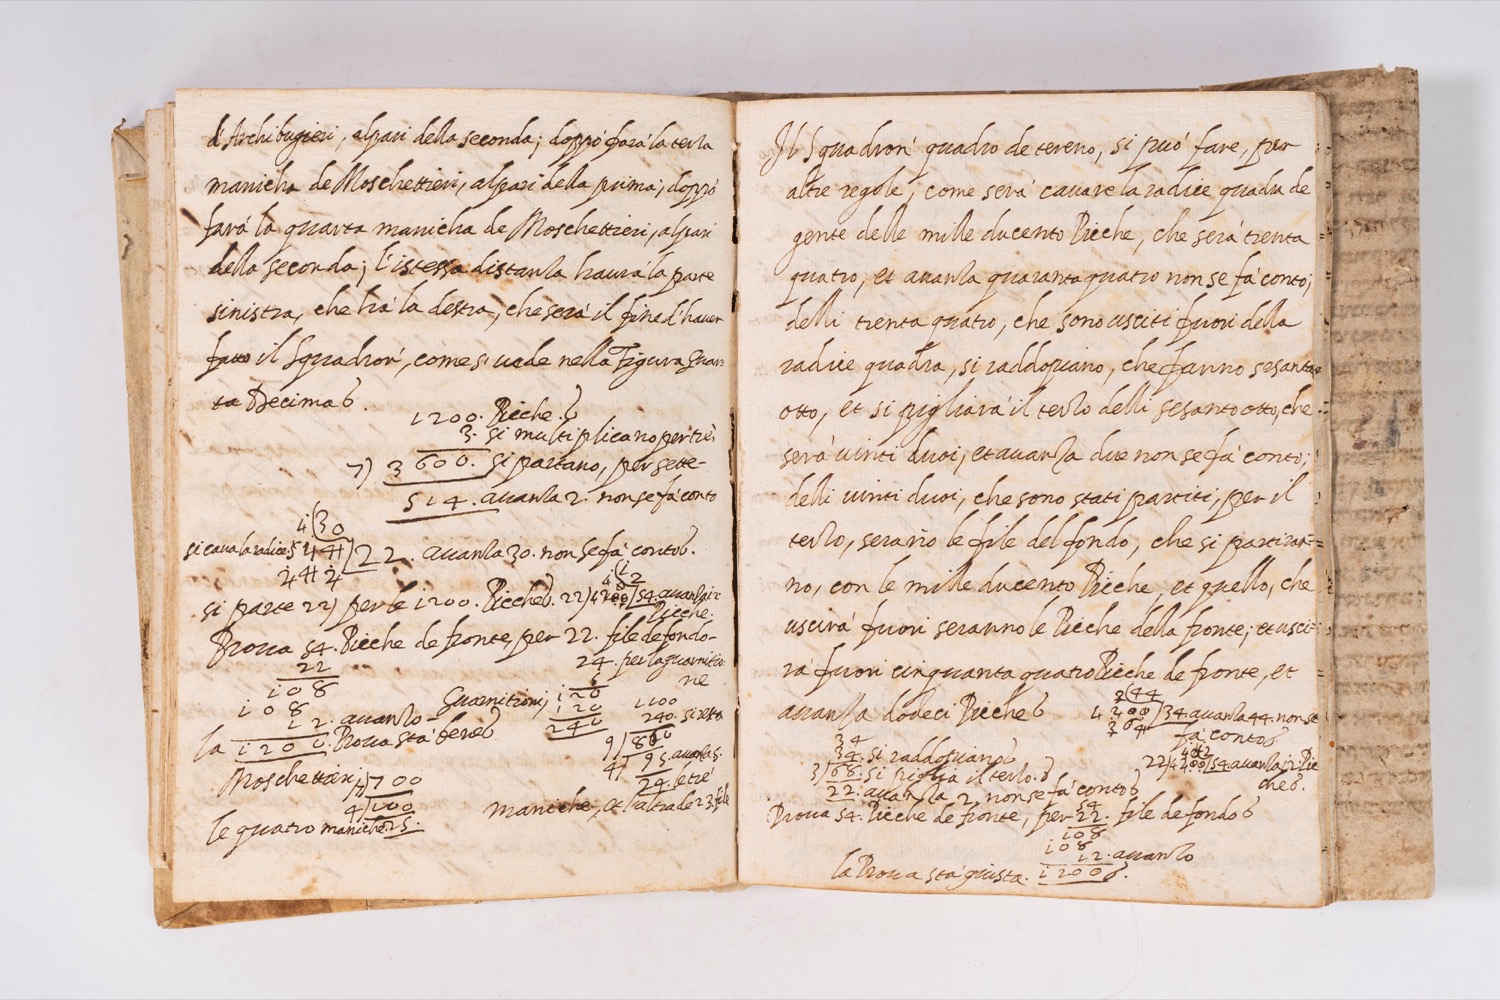 d'Archibugieri, alpari della seconda; doppò farà la terza
manicha de Moschettieri, alpari della prima; doppò
farà la quarta manicha de Moschettieri, alpari
della seconda; l'istessa distanza haurà la parte
sinistra, che hà la destra, che serà il fine d'hauer
fatto il Squadron, come si uede nella Figura Quar=
ta Decima.
1200. Picche.
3. si multiplicano per trè,
7) 3600. si partano, per sette-
514. auanza 2. non se fà conto
4(30
si caua la radice 514 | 22. auanza 30. non se fà conto.
si parte 22) per le 1200. Picche. 22) 1200 | 54. auanza 12
Picche.
Proua 54. Picche de fronte, per 22. file de fondo-
22
24. per la guarnitio
ne
108
108
12. auanzo
Guarnitioni,
120
120
240
1100
240. si resta
la 1200. Proua stà bene
9) 860
4) 95. auanza 5.
24. le trè
Moschettieri, 7) 700
4) 100
maniche, et l'altra de 23 file
le quatro maniche 25.
Il Squadron quadro de tereno, si può fare, per
altre regole, come serà cauare la radice quadra de
gente delle mille ducento Picche, che serà trenta
quatro, et auanza quaranta quatro non se fà conto;
delli trenta quatro, che sono usciti fuori della
radice quadra, si raddopiano, che fanno sesanta
otto, et si pigliarà il terzo delli sesanto otto, che
serà uinti duoi, et auanza due non se fà conto;
delli uinti duoi, che sono stati partiti, per il
terzo, serano le file del fondo, che si partiran=
no, con le mille ducento Picche, et quello, che
uscirà fuori seranno le Picche della fronte; et usci=
rà fuori cinquanta quatro Picche de fronte, et
auanza dodeci Picche
2(44
1200 | 34. auanza 44. non se
fà conto
34
34. si raddopiano
3) 68. si piglia il terzo.
22. auanza 2. non se fà conto
22) 1200 | 54. auanza 12. Pic
che.
Proua 54. Picche de fronte, per 22. file de fondo
54
108
108
12. auanzo
la Proua stà giusta. 1200.